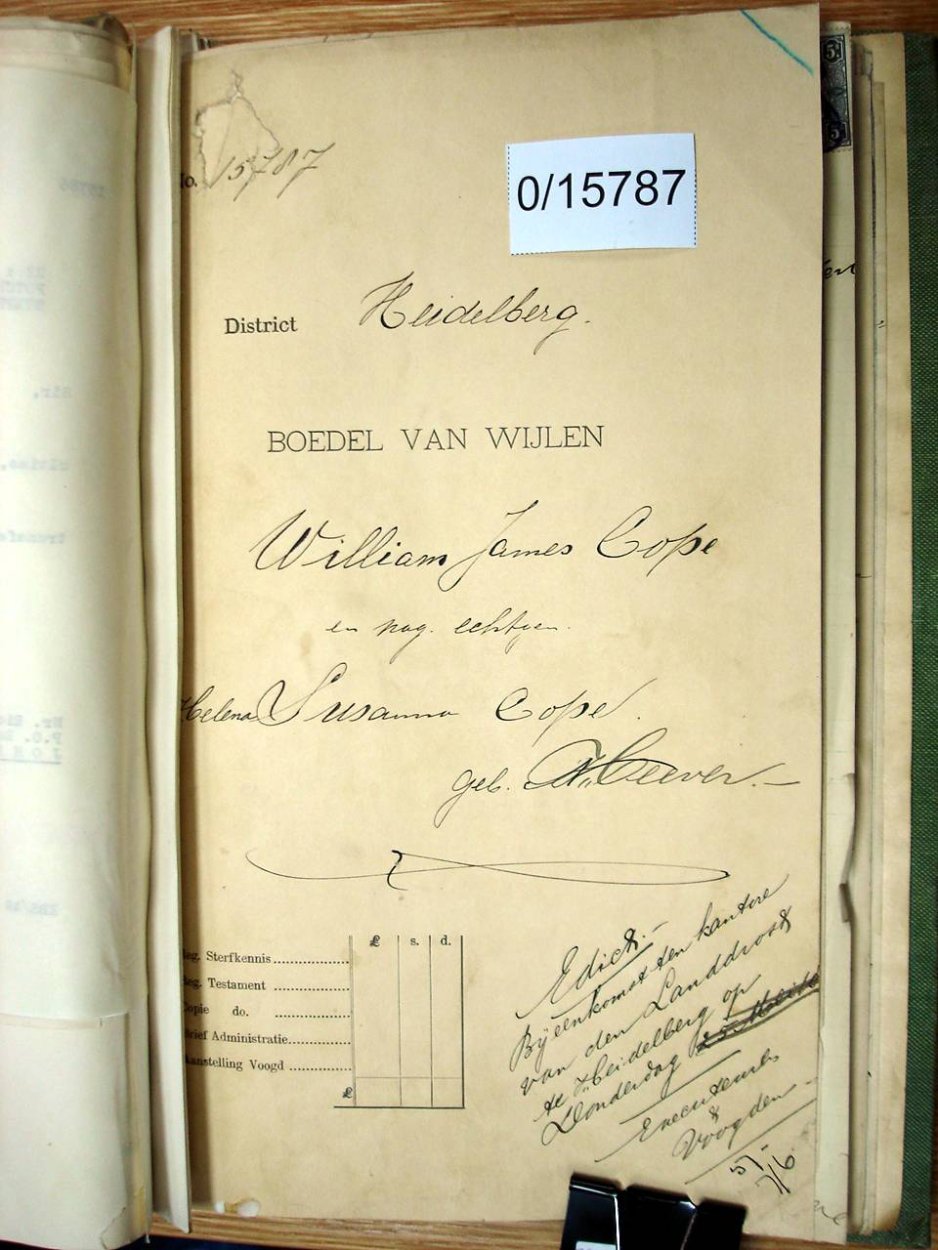 No. 15787
0/15787
District Heidelberg.
BOEDEL VAN WIJLEN
William James Cope
en nag. echtgen.
Helena Susanna Cope.
geb. Cleever.—
£ s. d.
eg. Sterfkennis
eg. Testament
Copie do.
Brief Administratie
Aanstelling Voogd
£
Edict.—
Bijeenkomst ten kantore
van den Landdrost
te Heidelberg op
Donderdag 25
Executeurs
&
Voogden
5/-
7/6